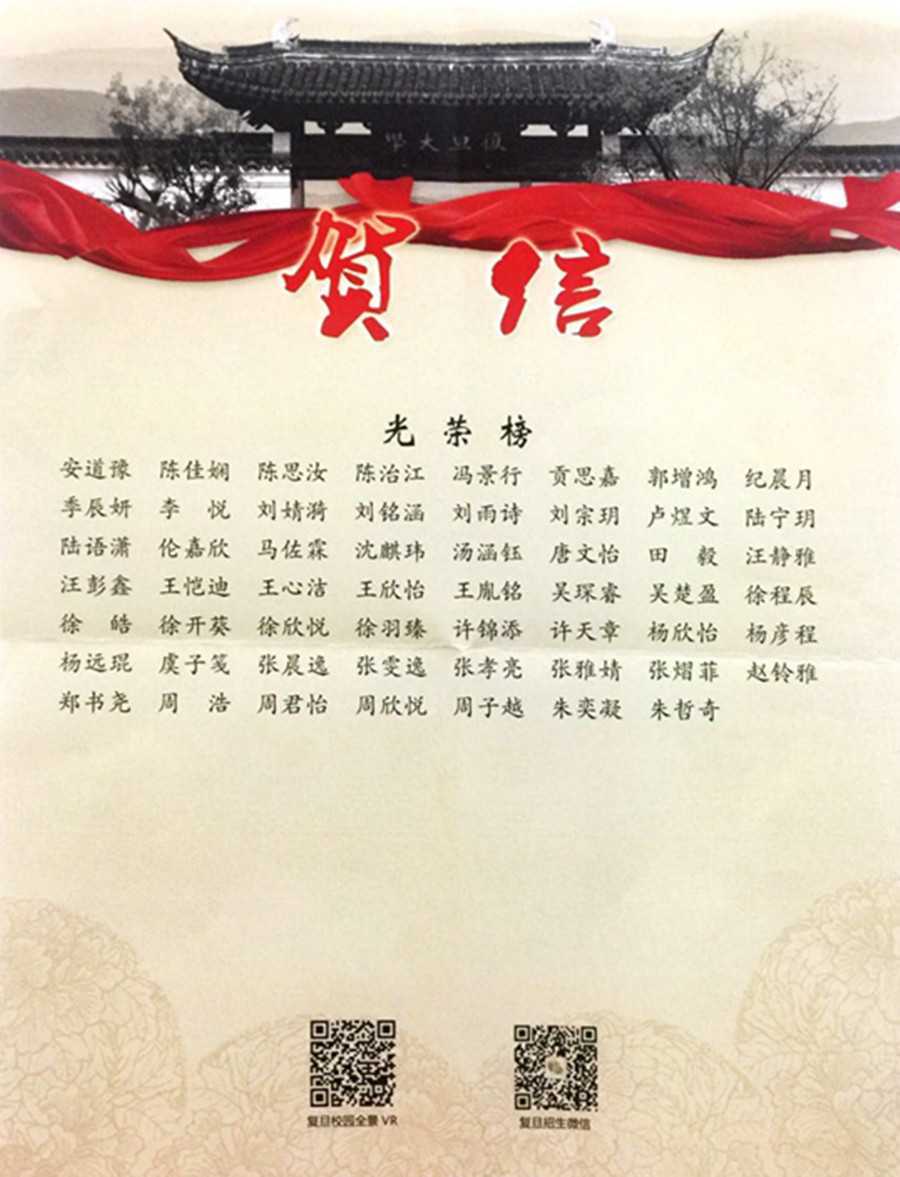 學大旦復
賀信
光荣榜
安道豫 陈佳娴 陈思汝 陈治江 冯景行 贡思嘉 郭增鸿 纪晨月
季辰妍 李 悦 刘婧漪 刘铭涵 刘雨诗 刘宗玥 卢煜文 陆宁玥
陆语潇 伦嘉欣 马佐霖 沈麒玮 汤涵钰 唐文怡 田 毅 汪静雅
汪彭鑫 王恺迪 王心洁 王欣怡 王胤铭 吴琛睿 吴楚盈 徐程辰
徐 皓 徐开葵 徐欣悦 徐羽臻 许锦添 许天章 杨欣怡 杨彦程
杨远琨 虞子笺 张晨逸 张雯逸 张孝亮 张雅婧 张熠菲 赵铃雅
郑书尧 周 浩 周君怡 周欣悦 周子越 朱奕凝 朱哲奇
复旦校园全景 VR 复旦招生微信